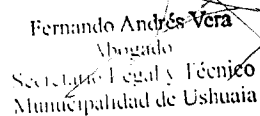 Fernando Andrés Vera
Abogado
Secretario Legal y Técnico
Municipalidad de Ushuaia